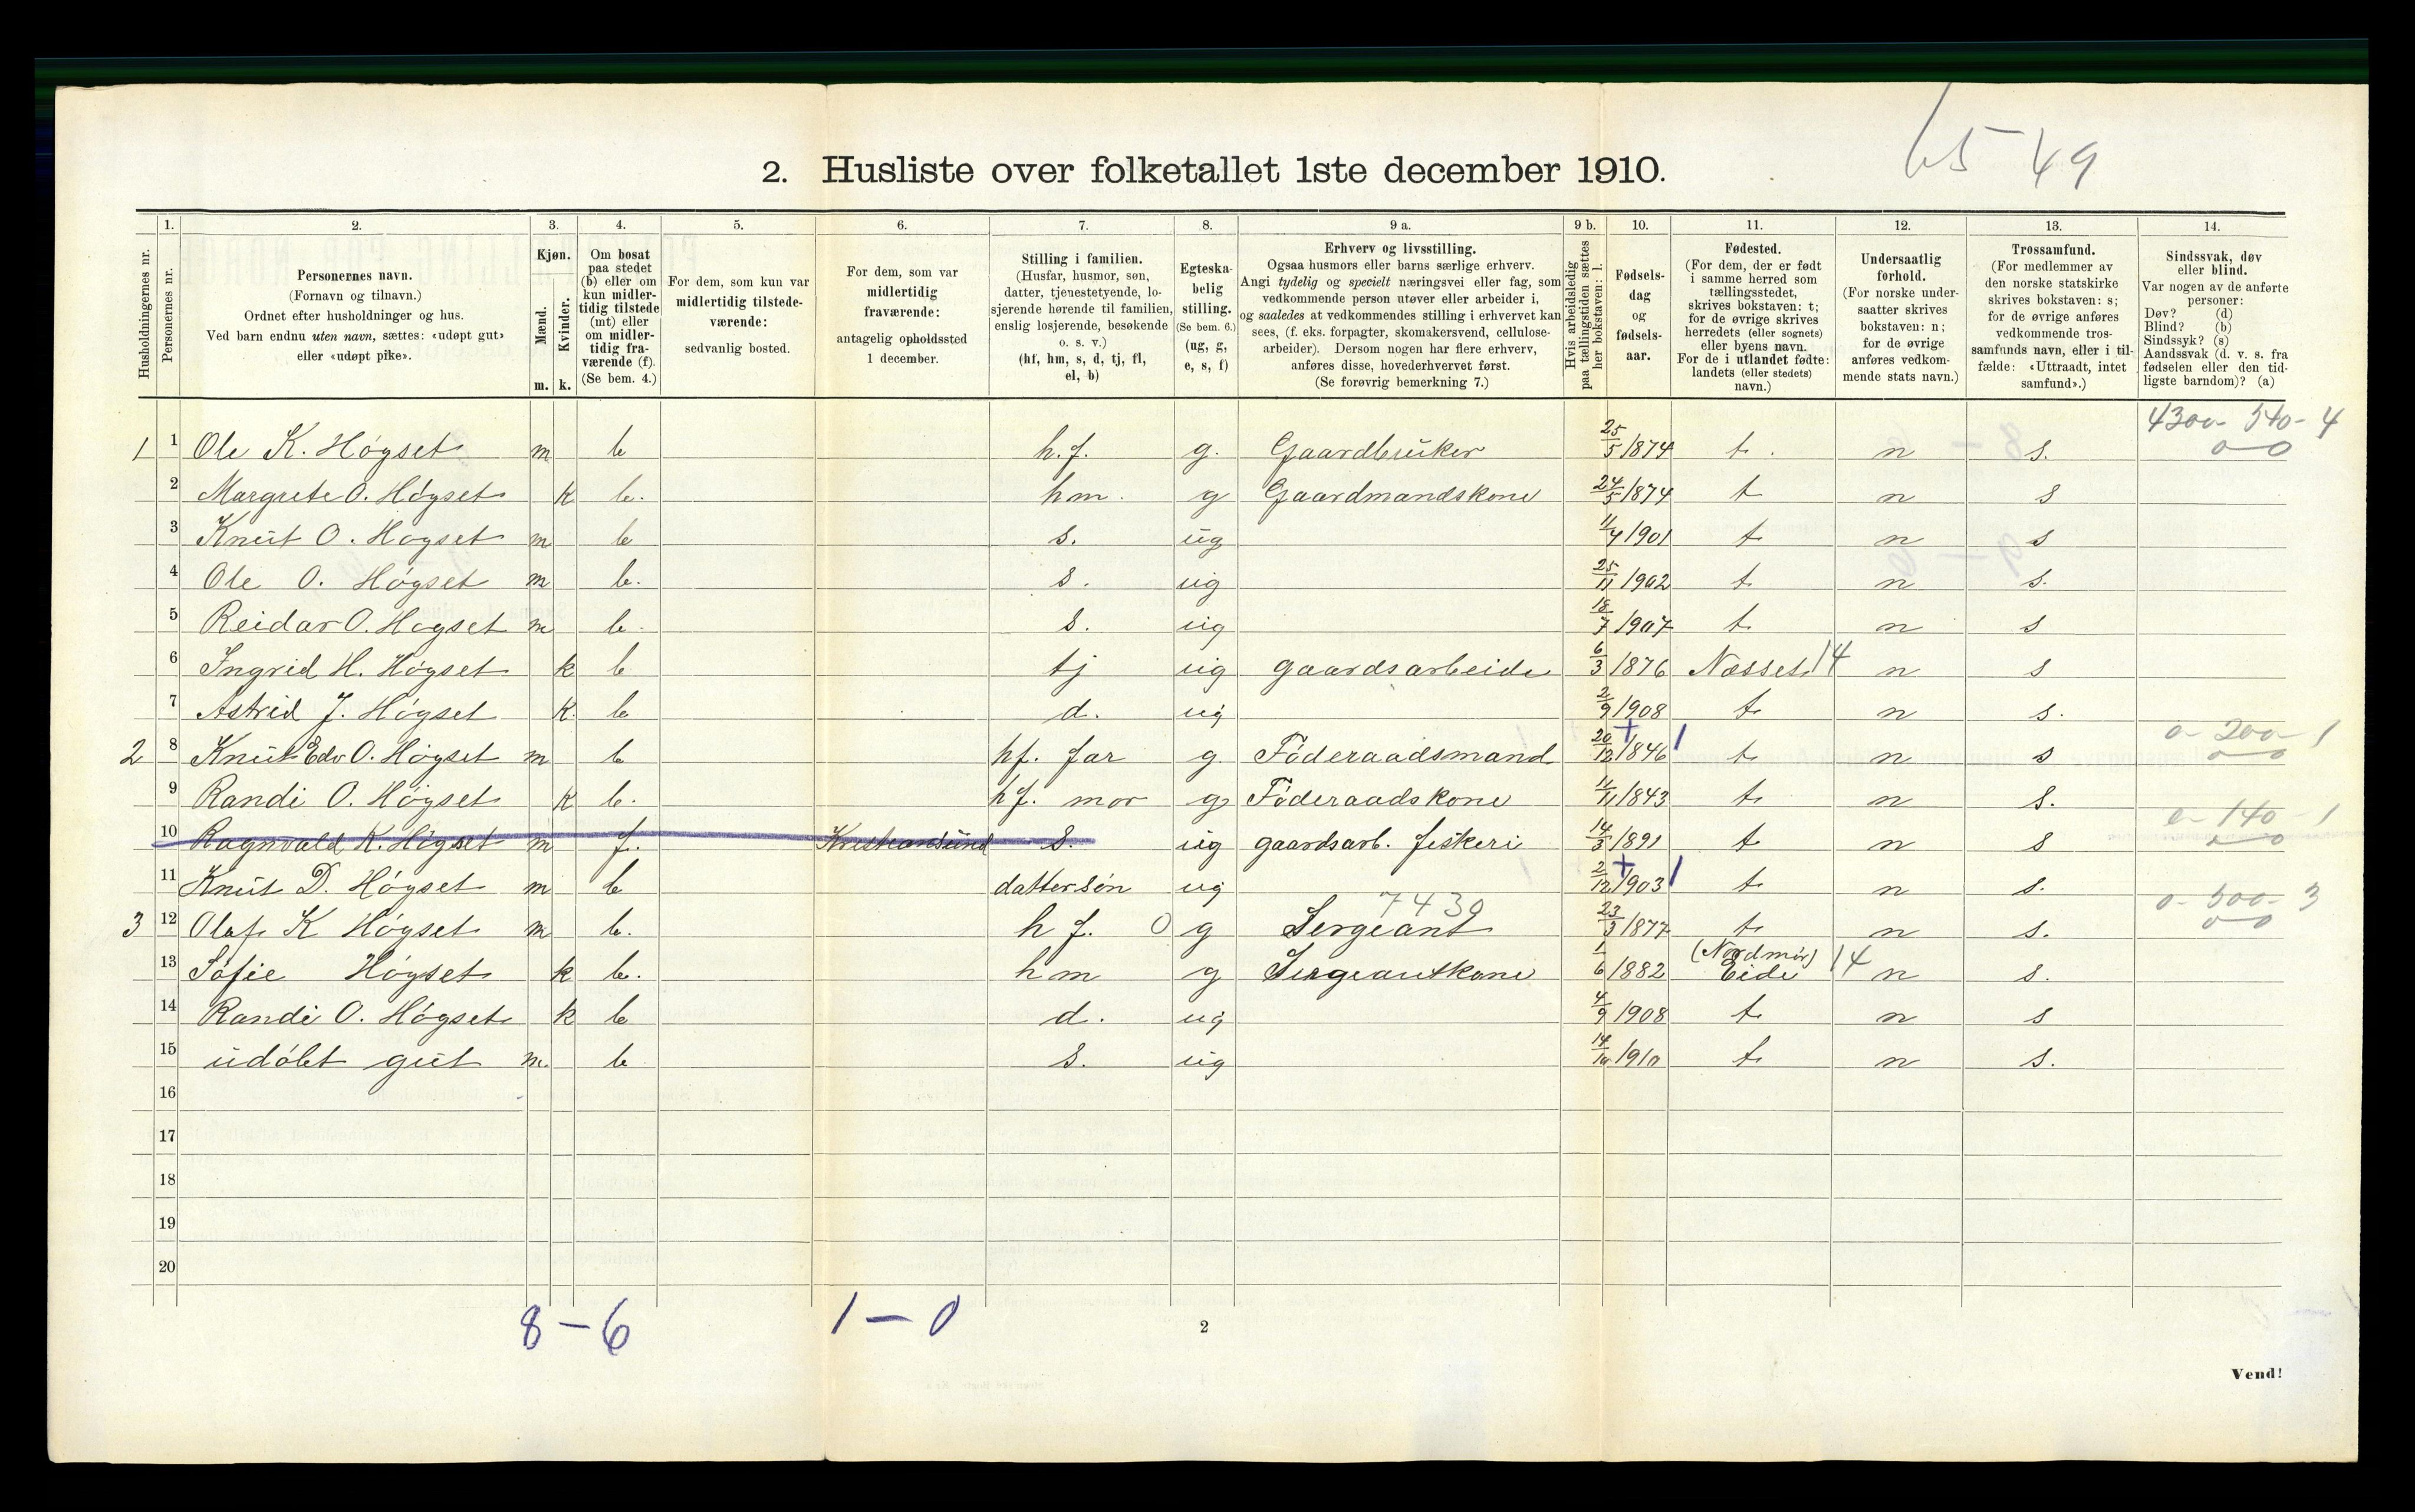 65-49
2. Husliste over folketallet 1ste december 1910.
1. 2. 3. 4. 5. 6. 7. 8. 9 a. 9 b. 10. 11. 12. 13. 14.
Husholdningernes nr.
Personernes nr.
Personernes navn.
(Fornavn og tilnavn.)
Ordnet efter husholdninger og hus.
Ved barn endnu uten navn, sættes: «udøpt gut»
eller «udøpt pike».
Kjøn.
Mænd.
Kvinder.
m. k.
Om bosat
paa stedet
(b) eller om
kun midler-
tidig tilstede
(mt) eller
om midler-
tidig fra-
værende (f).
(Se bem. 4.)
For dem, som kun var
midlertidig tilstede-
værende:
sedvanlig bosted.
For dem, som var
midlertidig
fraværende:
antagelig opholdssted
1 december.
Stilling i familien.
(Husfar, husmor, søn,
datter, tjenestetyende, lo-
sjerende hørende til familien,
enslig losjerende, besøkende
o. s. v.)
(hf, hm, s, d, tj, fl,
el, b)
Egteska-
belig
stilling.
(Se bem. 6.)
(ug, g,
e, s, f)
Erhverv og livsstilling.
Ogsaa husmors eller barns særlige erhverv.
Angi tydelig og specielt næringsvei eller fag, som
vedkommende person utøver eller arbeider i,
og saaledes at vedkommendes stilling i erhvervet kan
sees, (f. eks. forpagter, skomakersvend, cellulose-
arbeider). Dersom nogen har flere erhverv,
anføres disse, hovederhvervet først.
(Se forøvrig bemerkning 7.)
Hvis arbeidsledig
paa tællingstiden sættes
her bokstaven: l.
Fødsels-
dag
og
fødsels-
aar.
Fødested.
(For dem, der er født
i samme herred som
tællingsstedet,
skrives bokstaven: t;
for de øvrige skrives
herredets (eller sognets)
eller byens navn.
For de i utlandet fødte:
landets (eller stedets)
navn.)
Undersaatlig
forhold.
(For norske under-
saatter skrives
bokstaven: n;
for de øvrige
anføres vedkom-
mende stats navn.)
Trossamfund.
(For medlemmer av
den norske statskirke
skrives bokstaven: s;
for de øvrige anføres
vedkommende tros-
samfunds navn, eller i til-
fælde: «Uttraadt, intet
samfund».)
Sindssvak, døv
eller blind.
Var nogen av de anførte
personer:
Døv? (d)
Blind? (b)
Sindssyk? (s)
Aandssvak (d. v. s. fra
fødselen eller den tid-
ligste barndom)? (a)
4300- 540- 4
0-0
1 1 Ole K. Høgset m b h.f. g. Gaardbruker 25/5 1874 t. n s.
2 Margrete O. Høgset k b. hm. g Gaardmandskone 24/5 1874 t n s
3 Knut O. Høgset m b s. ug 11/4 1901 t n s
4 Ole O. Høgset m b. s. ug 25/11 1902 t n s.
5 Reidar O. Høgset m b. s. ug 18/7 1907 t. n s
6 Ingrid H. Høgset k b tj ug gaardsarbeide 6/3 1876 Næsset 14 n s
7 Astrid J. Høgset k b d. ug 2/9 1908 t. n s.
0- 200- 1
0-0
2 8 Knut Edv O. Høgset m b hf. far g. Føderaadsmand 20/12 1846 t n s
9 Randi O. Høgset k b. hf. mor g Føderaadskone 11/11 1843 t. n s.
0- 140- 1
10 Ragnvald K. Høgset m f. Kristiansund s. ug gaardsarb. fiskeri 14/3 1891 t n s
11 Knut D. Høgset m b dattersøn ug 2/12 1903 t n s.
0- 500- 3
0-0
7430
3 12 Olaf K Høgset m b. h f. 0 g Sergeant 23/3 1877 t. n s.
13 Sofie Høgset k b. hm g Sergeantkone 1/6 1882 (Nordmør) Eide 14 n s.
14 Randi O. Høgset k b d. ug 4/9 1908 t. n s
15 udøbt gut m. b s. ug 14/10 1910 t. n s.
16
17
18
19
20
8-6 1-0
2
Vend!